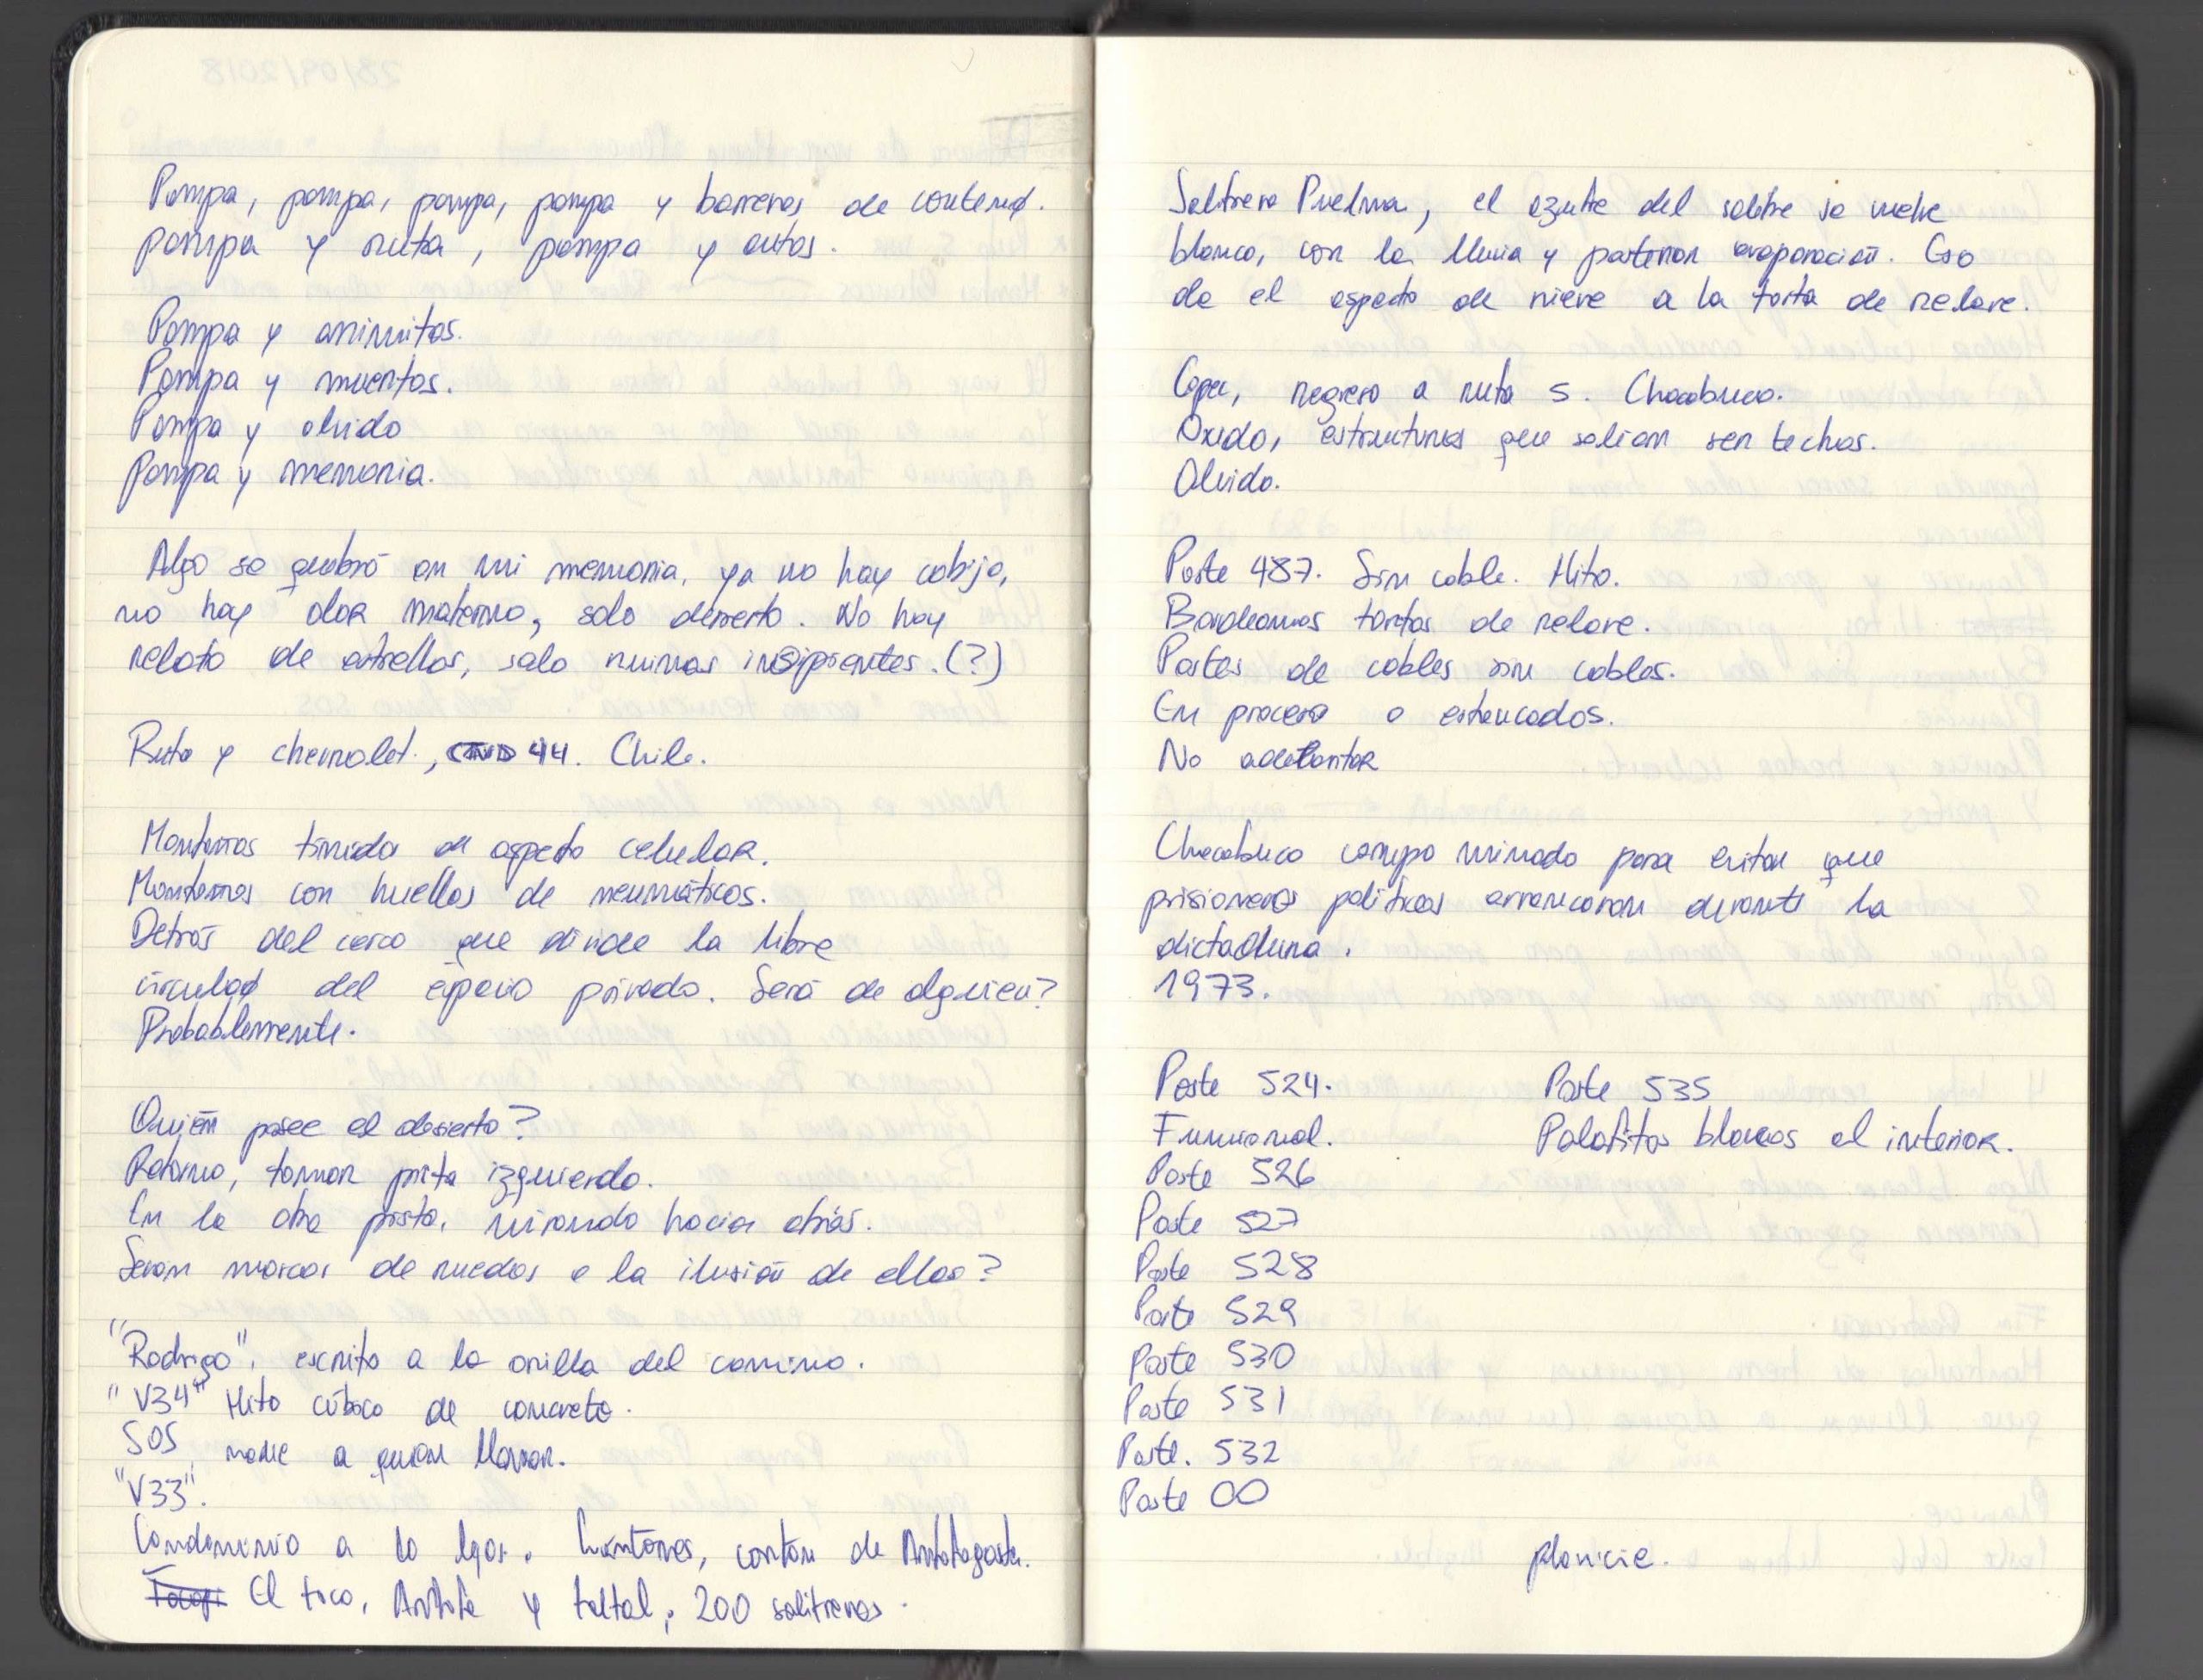 Pampa, pampa, pampa, pampa y barreras de contenø.
pampa y ruta, pampa y autos.
Pampa y animitas.
Pampa y muertos.
Pampa y olvido
Pampa y memoria.
Algo se quebró en mi memoria, ya no hay cobijo,
no hay olor materno, solo desierto. No hay
relato de estrellas, solo ruinas insipientes. (?)
Ruta y chevrolet, 44. Chile.
Montañas de aspecto celular.
Montañas con huellas de neumáticos.
Detrás del cerco que divide la libre
del espacio privado. Será de alguien?
Probablemente.
Quién posee el desierto?
Retorno, tomar pista izquierda.
En la otra pista, mirando hacia atrás.
Seran marcas de ruedas o la ilusión de ellas?
"Rodrigo", escrito a la orilla del camino.
"V34" Hito cúbico de concreto.
SOS nadie a quien llamar.
"V33".
Condominio a lo lejos. cantón de Antofagasta.
El toco, Antofa y taltal, 200 salitreras.
Salitrera Prelma, el azufre del salitre se vuelve
blanco, con la lluvia y posterior evaporación. Eso
da el aspecto de nieve a la torta de relave.
Copec, regreso a ruta 5. Chacabuco.
Oxido, estructuras que solian ser techos.
Olvido.
Poste 487. Sin cable. Hito.
Bordeamos tortas de relave.
Postes de cables sin cables.
En proceso o estancados.
No adelantar
Chacabuco campo minado para evitar que
prisioneros políticos arrancaran durante la
dictadura.
1973.
Poste 524. Poste 535
Funcional. Palafitos blancos al interior.
Poste 526
Poste 527
Poste 528
Poste 529
Poste 530
Poste 531
Poste. 532
Poste 00
planicie.